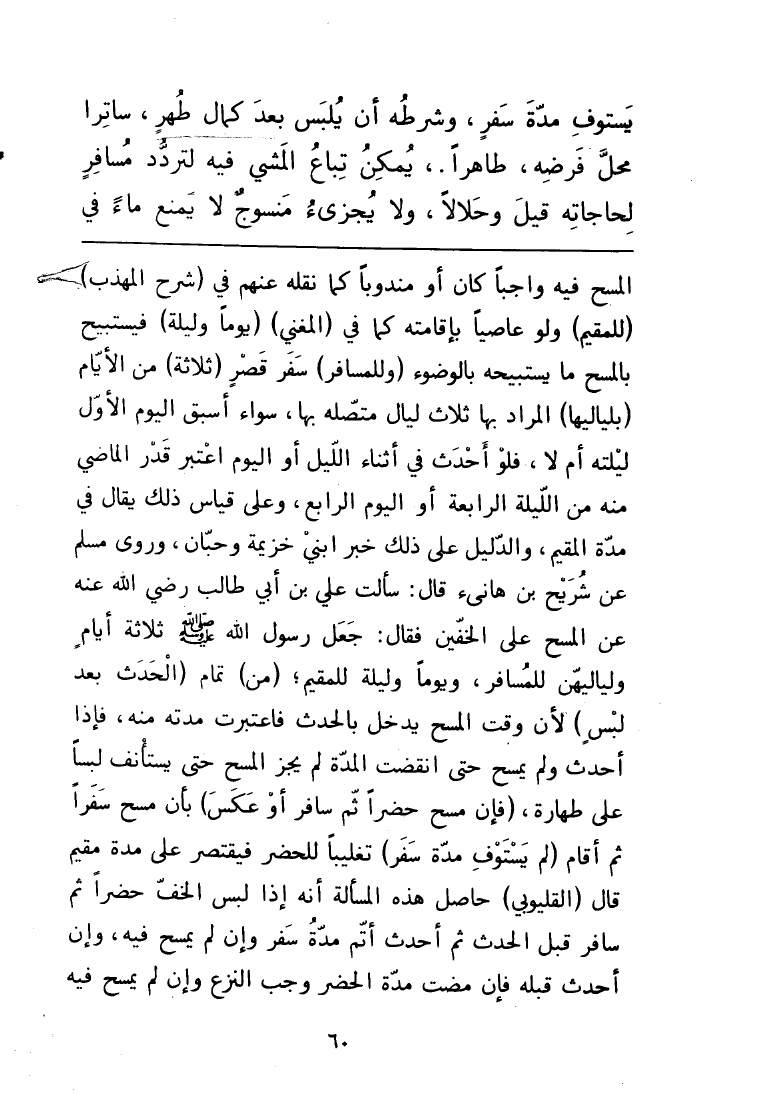 يَستوفِ مدّةَ سَفرٍ ، وشرطُه أن يُلبَس بعدَ كمال طُهرٍ ، ساتِرا
محلَّ فَرضِه ، طاهراً . ، يُمكِنُ تِباعُ المَشي فيه لتردُّد مُسافرٍ
لحاجاتِه قيلَ وحَلالاً ، ولا يُجزىءُ مَنسوجٌ لا يَمنع ماءً في
المسح فيه واجباً كان أو مندوباً كما نقله عنهم في (شرح المهذب)
(للمقيم) ولو عاصياً بإقامته كما في (المغني) (يوماً وليلة) فيستبيح
بالمسح ما يستبيحه بالوضوء (وللمسافر) سَفَر قَصْرٍ (ثلاثة) من الأيّام
(بلياليها) المراد بها ثلاث ليال متصّله بها ، سواء أسبق اليوم الأوّل
ليْلته أم لا ، فلوْ أَحْدَث في أثناء اللّيل أو اليوم اعْتبر قَدْر الماضي
منه من اللّيلة الرابعة أو اليوم الرابع ، وعلى قياس ذلك يقال في
مدّة المقيم ، والدّليل على ذلك خبر ابنيْ خزيمة وحبّان ، وروى مسلم
عن شُرَيْح بن هانىء قال : سألت علي بن أبي طالب رضي الله عنه
عن المسح على الخفّين فقال : جَعَل رسول الله ﷺ ثلاثة أيام
ولياليهّن للمُسافر ، ويوماً وليلة للمقيم ؛ (من) تمام (الْحَدَث بعد
لبْسٍ) لأن وقت المسح يدخل بالحدث فاعتبرت مدته منه ، فإذا
أحدث ولم يمسح حتى انقضت المدّة لم يجز المسح حتى يستأنف لبساً
على طهارة ، (فإن مسح حضراً ثّم سافر أوْ عَكَسَ) بأن مسح سَفَراً
ثم أقام (لم يَسْتَوْفِ مدّة سَفَر) تغليباً للحضر فيقتصر على مدة مقيم
قال (القليوبي) حاصل هذه المسألة أنه إذا لبس الخفّ حضراً ثم
سافر قبل الحدث ثم أحدث أتّم مدّةُ سَفر وإن لم يمسح فيه ، وإن
أحدث قبله فإن مضت مدّة الحضر وجب النزع وإن لم يمسح فيه
٦٠